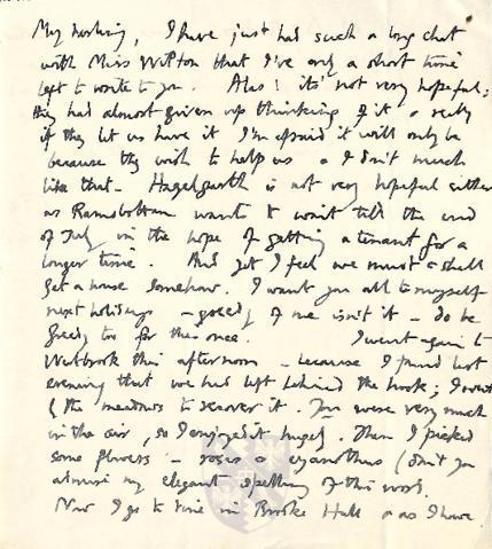 My darling, I have just had such a long chat
with Miss Wilton that I've only a short time
left to write to you. Alas! its not very hopeful;
they had almost given up thinking of it & really
if they let us have it I'm afraid it will only be
because they wish to help us & I don't much
like that - Hagelgarth is not very hopeful either
as Ramsbottom wants to wait till the end
of July in the hope of getting a tenant for a
longer time. And yet I feel we must & shall
get a house somehow. I want you all to myself
next holidays - greedy of me isn't it - do be
greedy too for this once. I went again to
Westbrook this afternoon - because I found last
evening that we had left behind the book; I went
to the meadows to recover it. You were very much
in the air, so I enjoyed it hugely. Then I picked
some flowers - roses & cyanothus (don't you
admire my elegant spelling of this word.
Now I go to dine in Brooke Hall & as I have